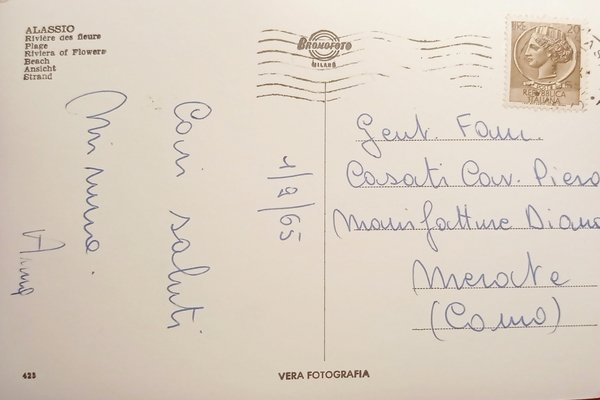 ALASSIO
Rivière des fleurs
Plage
Riviera of Flowers
Beach
Ansicht
Strand
Cari saluti
Mimma
Anna
1/9/65
BROMOFOTO
MILANO
20
REPUBBLICA
ITALIANA
Gent. Fam.
Casati Cav. Piero
Manifatture Diana
Merate
(Como)
425
VERA FOTOGRAFIA